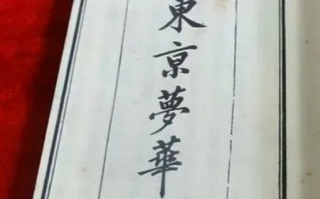 東京夢華